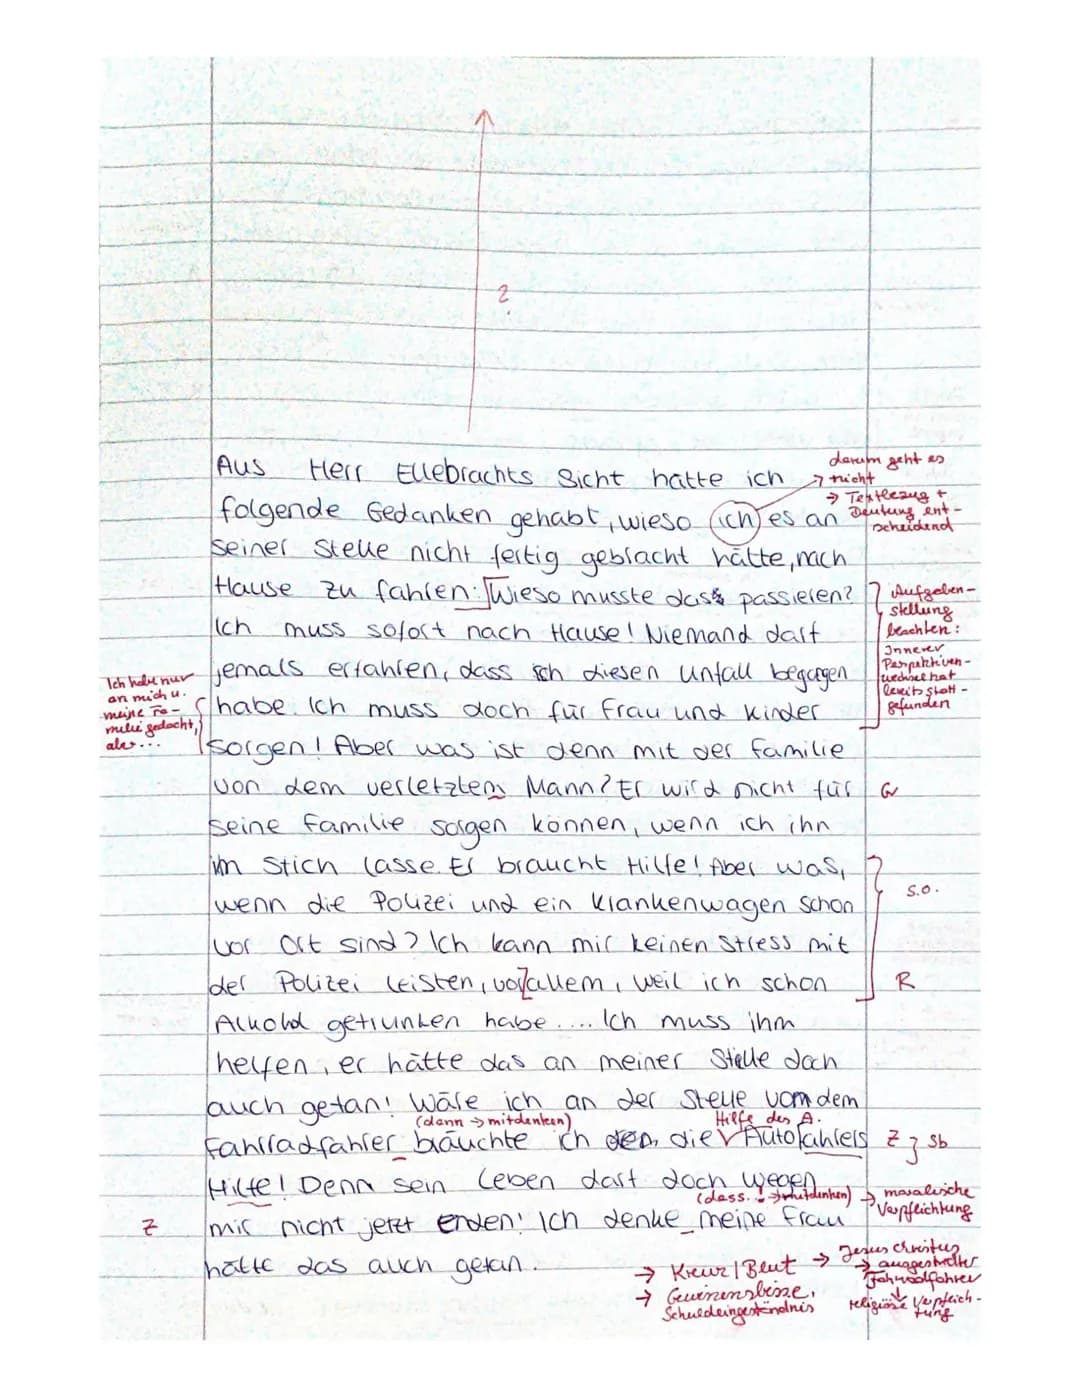 2
Aus Herr Ellebrachts Sicht hätte ich
darum geht es
nicht
→ Textbezug +
Deutung ent-
scheidend
folgende Gedanken gehabt, wieso ich es an
seiner Stelle nicht fertig gebracht hätte, nach
Hause zu fahren: Wieso musste das passieren?
Ich muss sofort nach Hause! Niemand darf
jemals erfahren, dass ich diesen Unfall begangen
habe. Ich muss doch für Frau und Kinder
Aufgaben-
stellung
beachten:
Innerer
Perspektiven-
wechsel hat
bereits statt-
gefunden
Ich habe nur
an mich u.
meine Fa-
milie gedacht,
aber...
sorgen! Aber was ist denn mit der Familie
von dem verletzten Mann? Er wird nicht für
G
seine Familie sorgen können, wenn ich ihn
im Stich lasse. Er braucht Hilfe! Aber was,
s.o.
wenn die Polizei und ein Krankenwagen schon
vor Ort sind? Ich kann mir keinen Stress mit
der Polizei leisten, vorallem, weil ich schon
R
Alkohol getrunken habe.... Ich muss ihm
helfen, er hätte das an meiner Stelle doch
auch getan! Wäre ich an der Stelle vom dem
(dann → mitdenken)
Hilfe des A.
Fahrradfahrer bräuchte ich die Autofahrers
Z
Sb
Hilfe! Denn sein Leben darf doch wegen
(dass... → mitdenken)
→ moralische
Verpflichtung
mir nicht jetzt enden! Ich denke meine Frau
Z
hätte das auch getan.
→ Kreuz/Blut → Jesus Christus
→ ausgestreckter
Fahrradfahrer
↓
religiöse Verpflich-
tung
→ Gewissensbisse,
Schuldeingeständnis